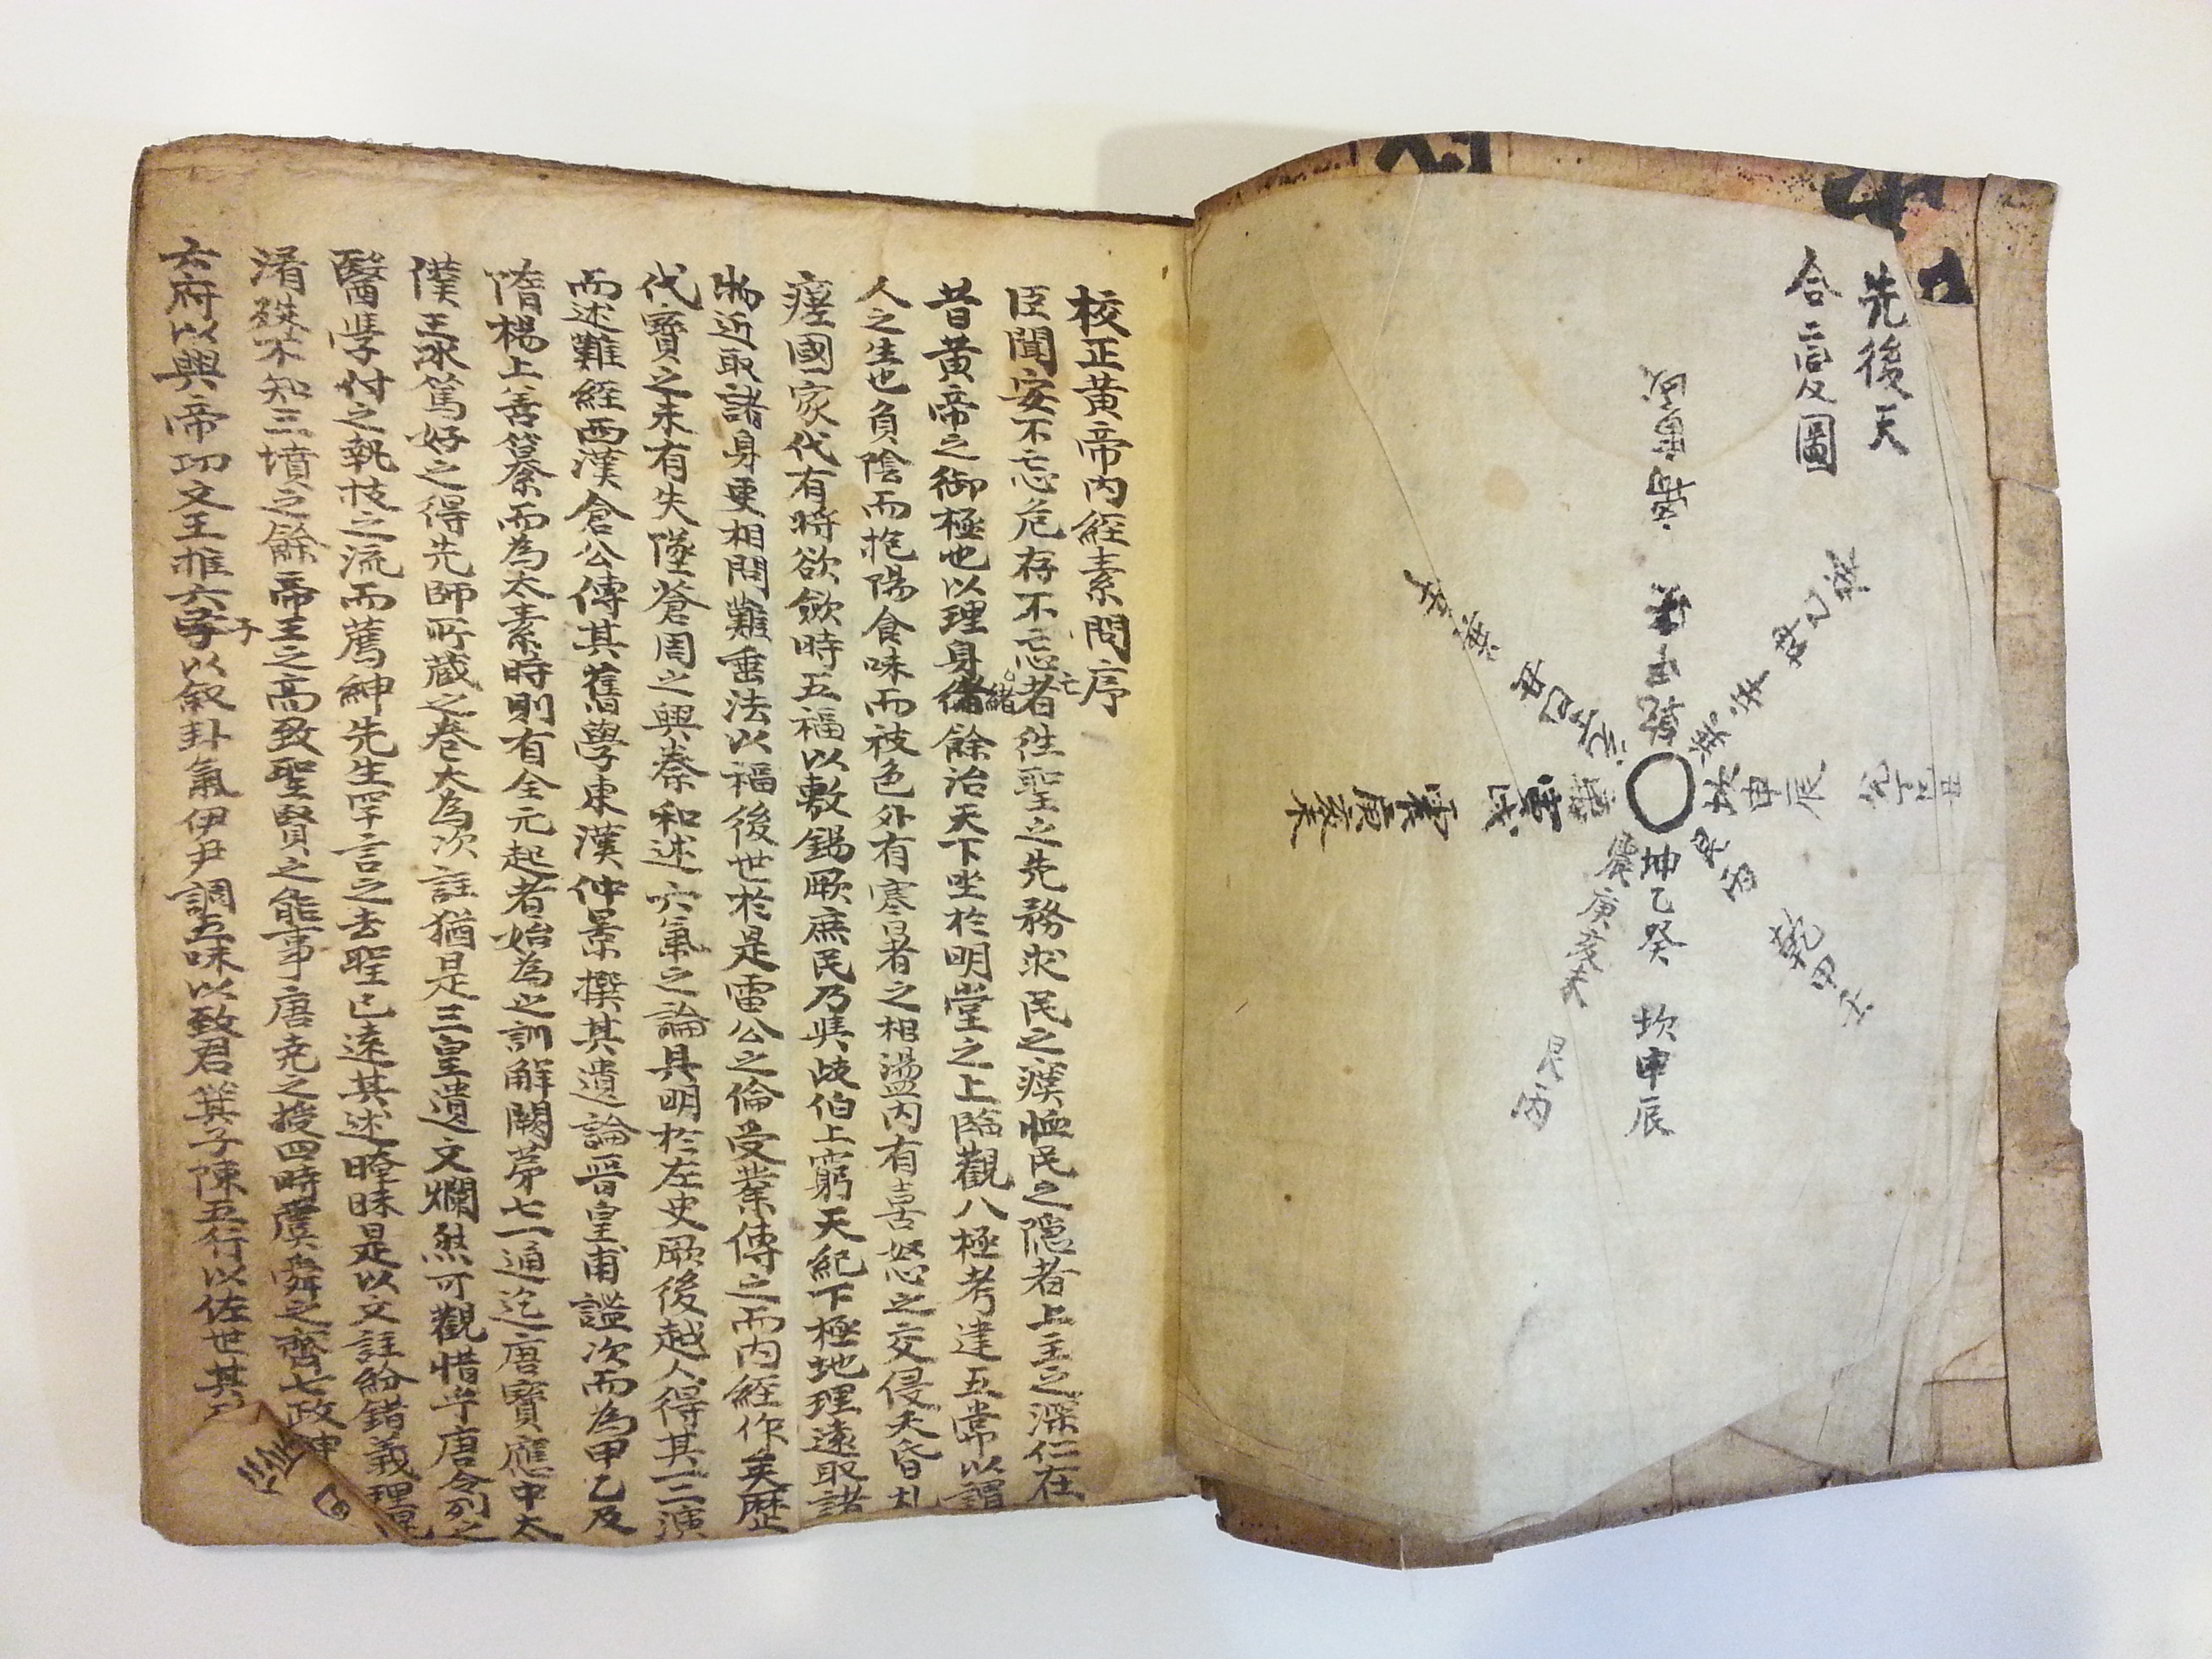 先後天
合二変圖
坤乙癸
坎申辰
震庚亥未
艮丙
坎申辰
艮丙
乾甲
校正黃帝內経素問序
臣聞安不忘危存不忘亡者徃聖之先務求民之瘼恤民之隱者上主之深仁在
昔黃帝之御極也以理身緒餘治天下坐於明堂之上臨觀八極考建五常以謂
人之生也負陰而抱陽食味而被色外有寒暑之相盪內有喜怒之交侵夭昏札
瘥國家代有將欲歛時五福以敷錫厥庶民乃與歧伯上窮天紀下極地理遠取諸
物近取諸身更相問難垂法以福後世於是雷公之倫受業傳之而內経作矣歷
代寶之未有失墜蒼周之興秦和述六氣之論具明於左史厥後越人得其一二演
而述難経西漢倉公傳其舊學東漢仲景撰其遺論晉皇甫謐次而為甲乙及
隋楊上善纂而為太素時則有全元起者始為之訓解闕苐七一通迄唐寶應中太
僕王冰篤好之得先師所藏之卷大為次註猶是三皇遺文爛然可觀惜乎唐令列之
醫學付之執技之流而薦紳先生罕言之去聖已遠其述晻昧是以文註紛錯義理混
淆殊不知三墳之餘帝王之高致聖賢之能事唐堯之授四時虞舜之齊七政神
六府以興帝功文王推六子以叙卦氣伊尹調五味以致君箕子陳五行以佐世其